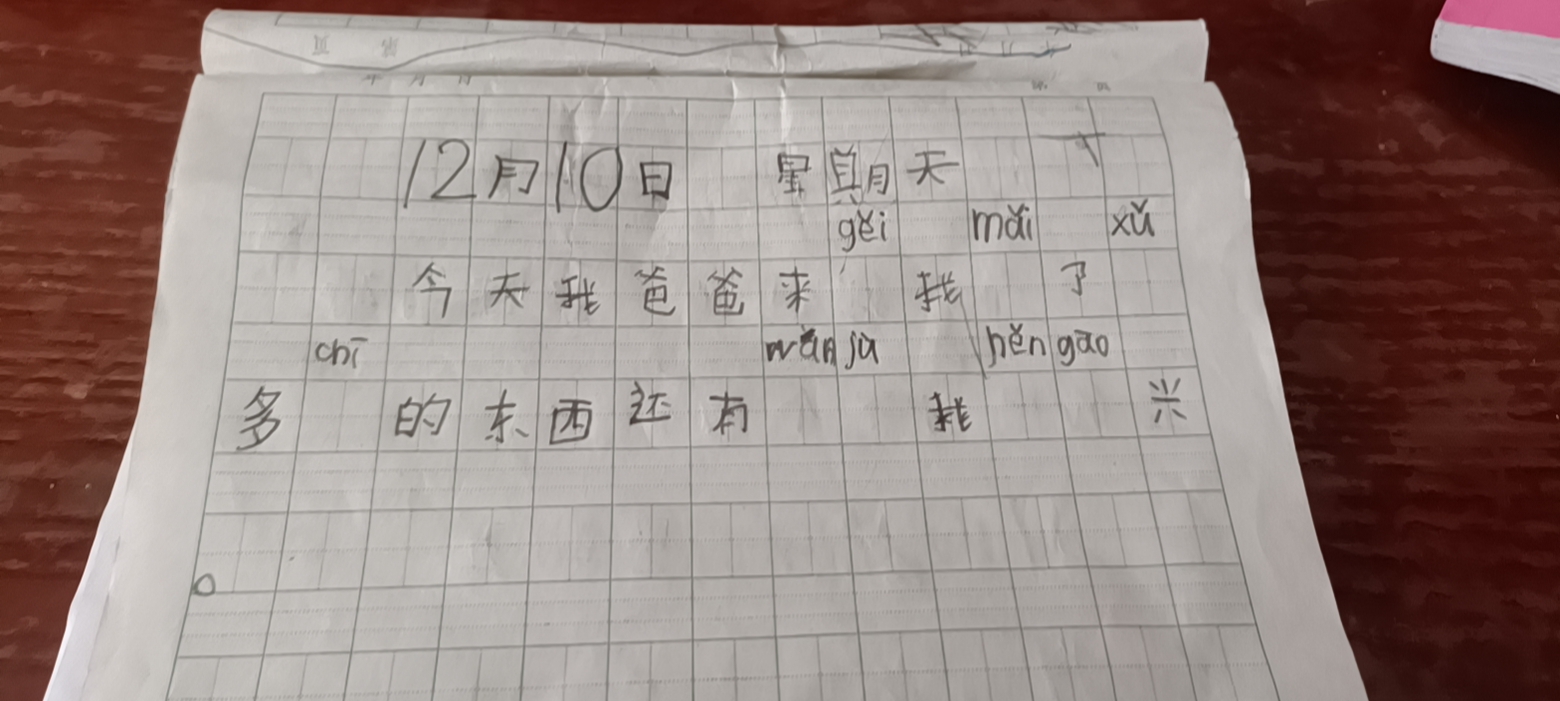 12月10日 星期天
gěi mǎi xǔ
今天我爸爸来 我 了
chī wán jù hěn gāo
多 的东西还有 我 兴
。